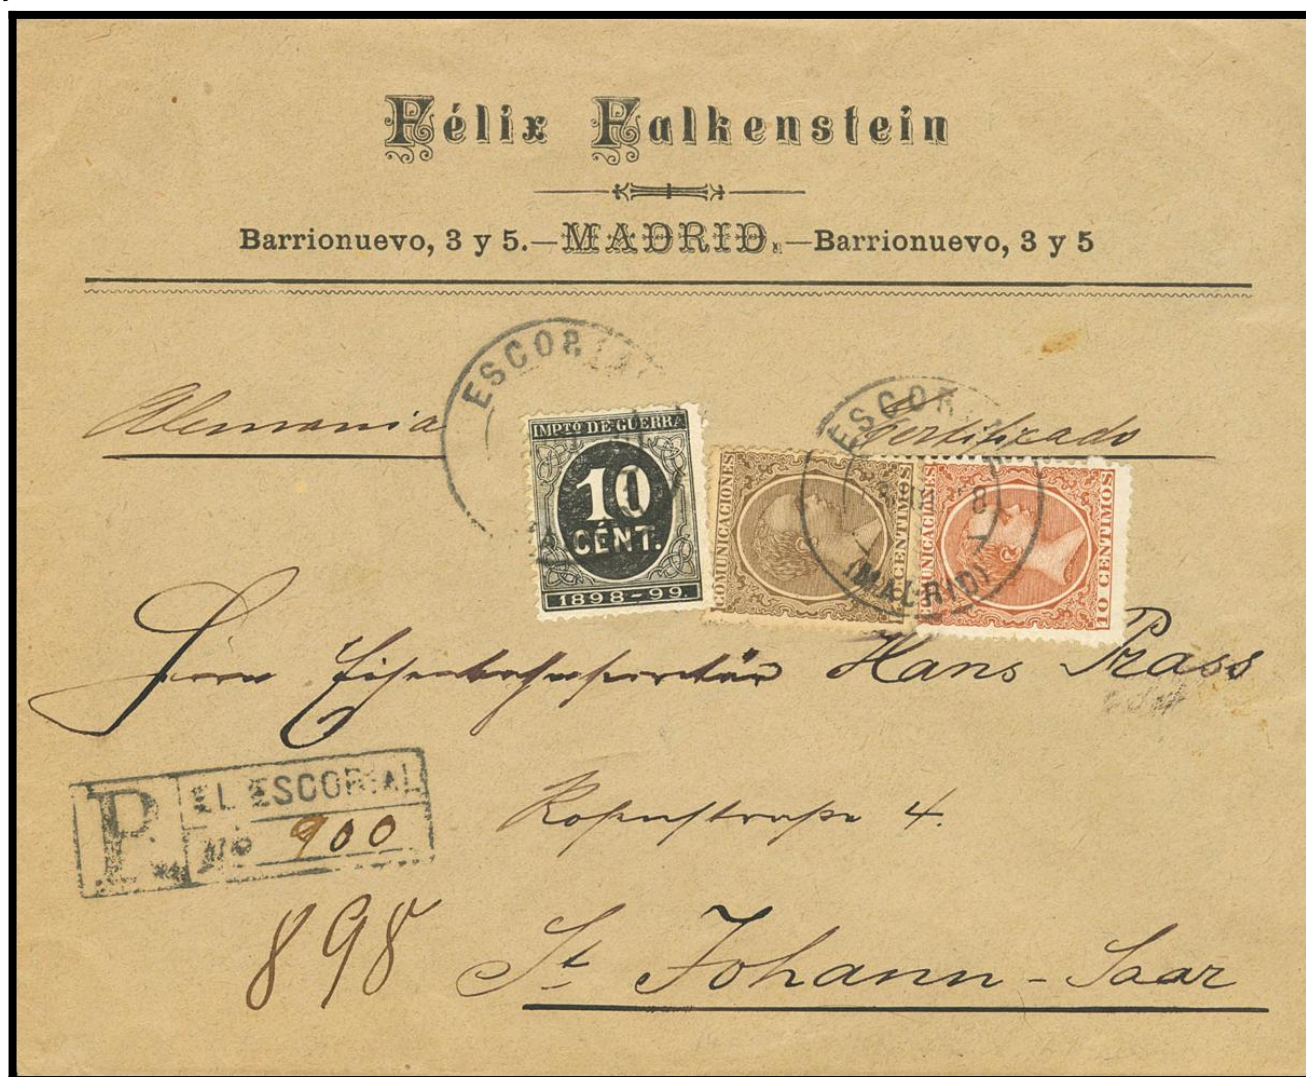 Félix Falkenstein
Barrionuevo, 3 y 5.—MADRID.—Barrionuevo, 3 y 5
Alemania
Certificado
ESCORIAL
ESCORIAL
(MADRID)
IMPTO DE GUERRA
10
CÉNT.
1898-99.
COMUNICACIONES
CENTIMOS
COMUNICACIONES
10 CENTIMOS
Herrn Eisenbahnsekretär Hans Prass
R
EL ESCORIAL
No 900
Rosenstrasse 4.
898
St Johann-Saar